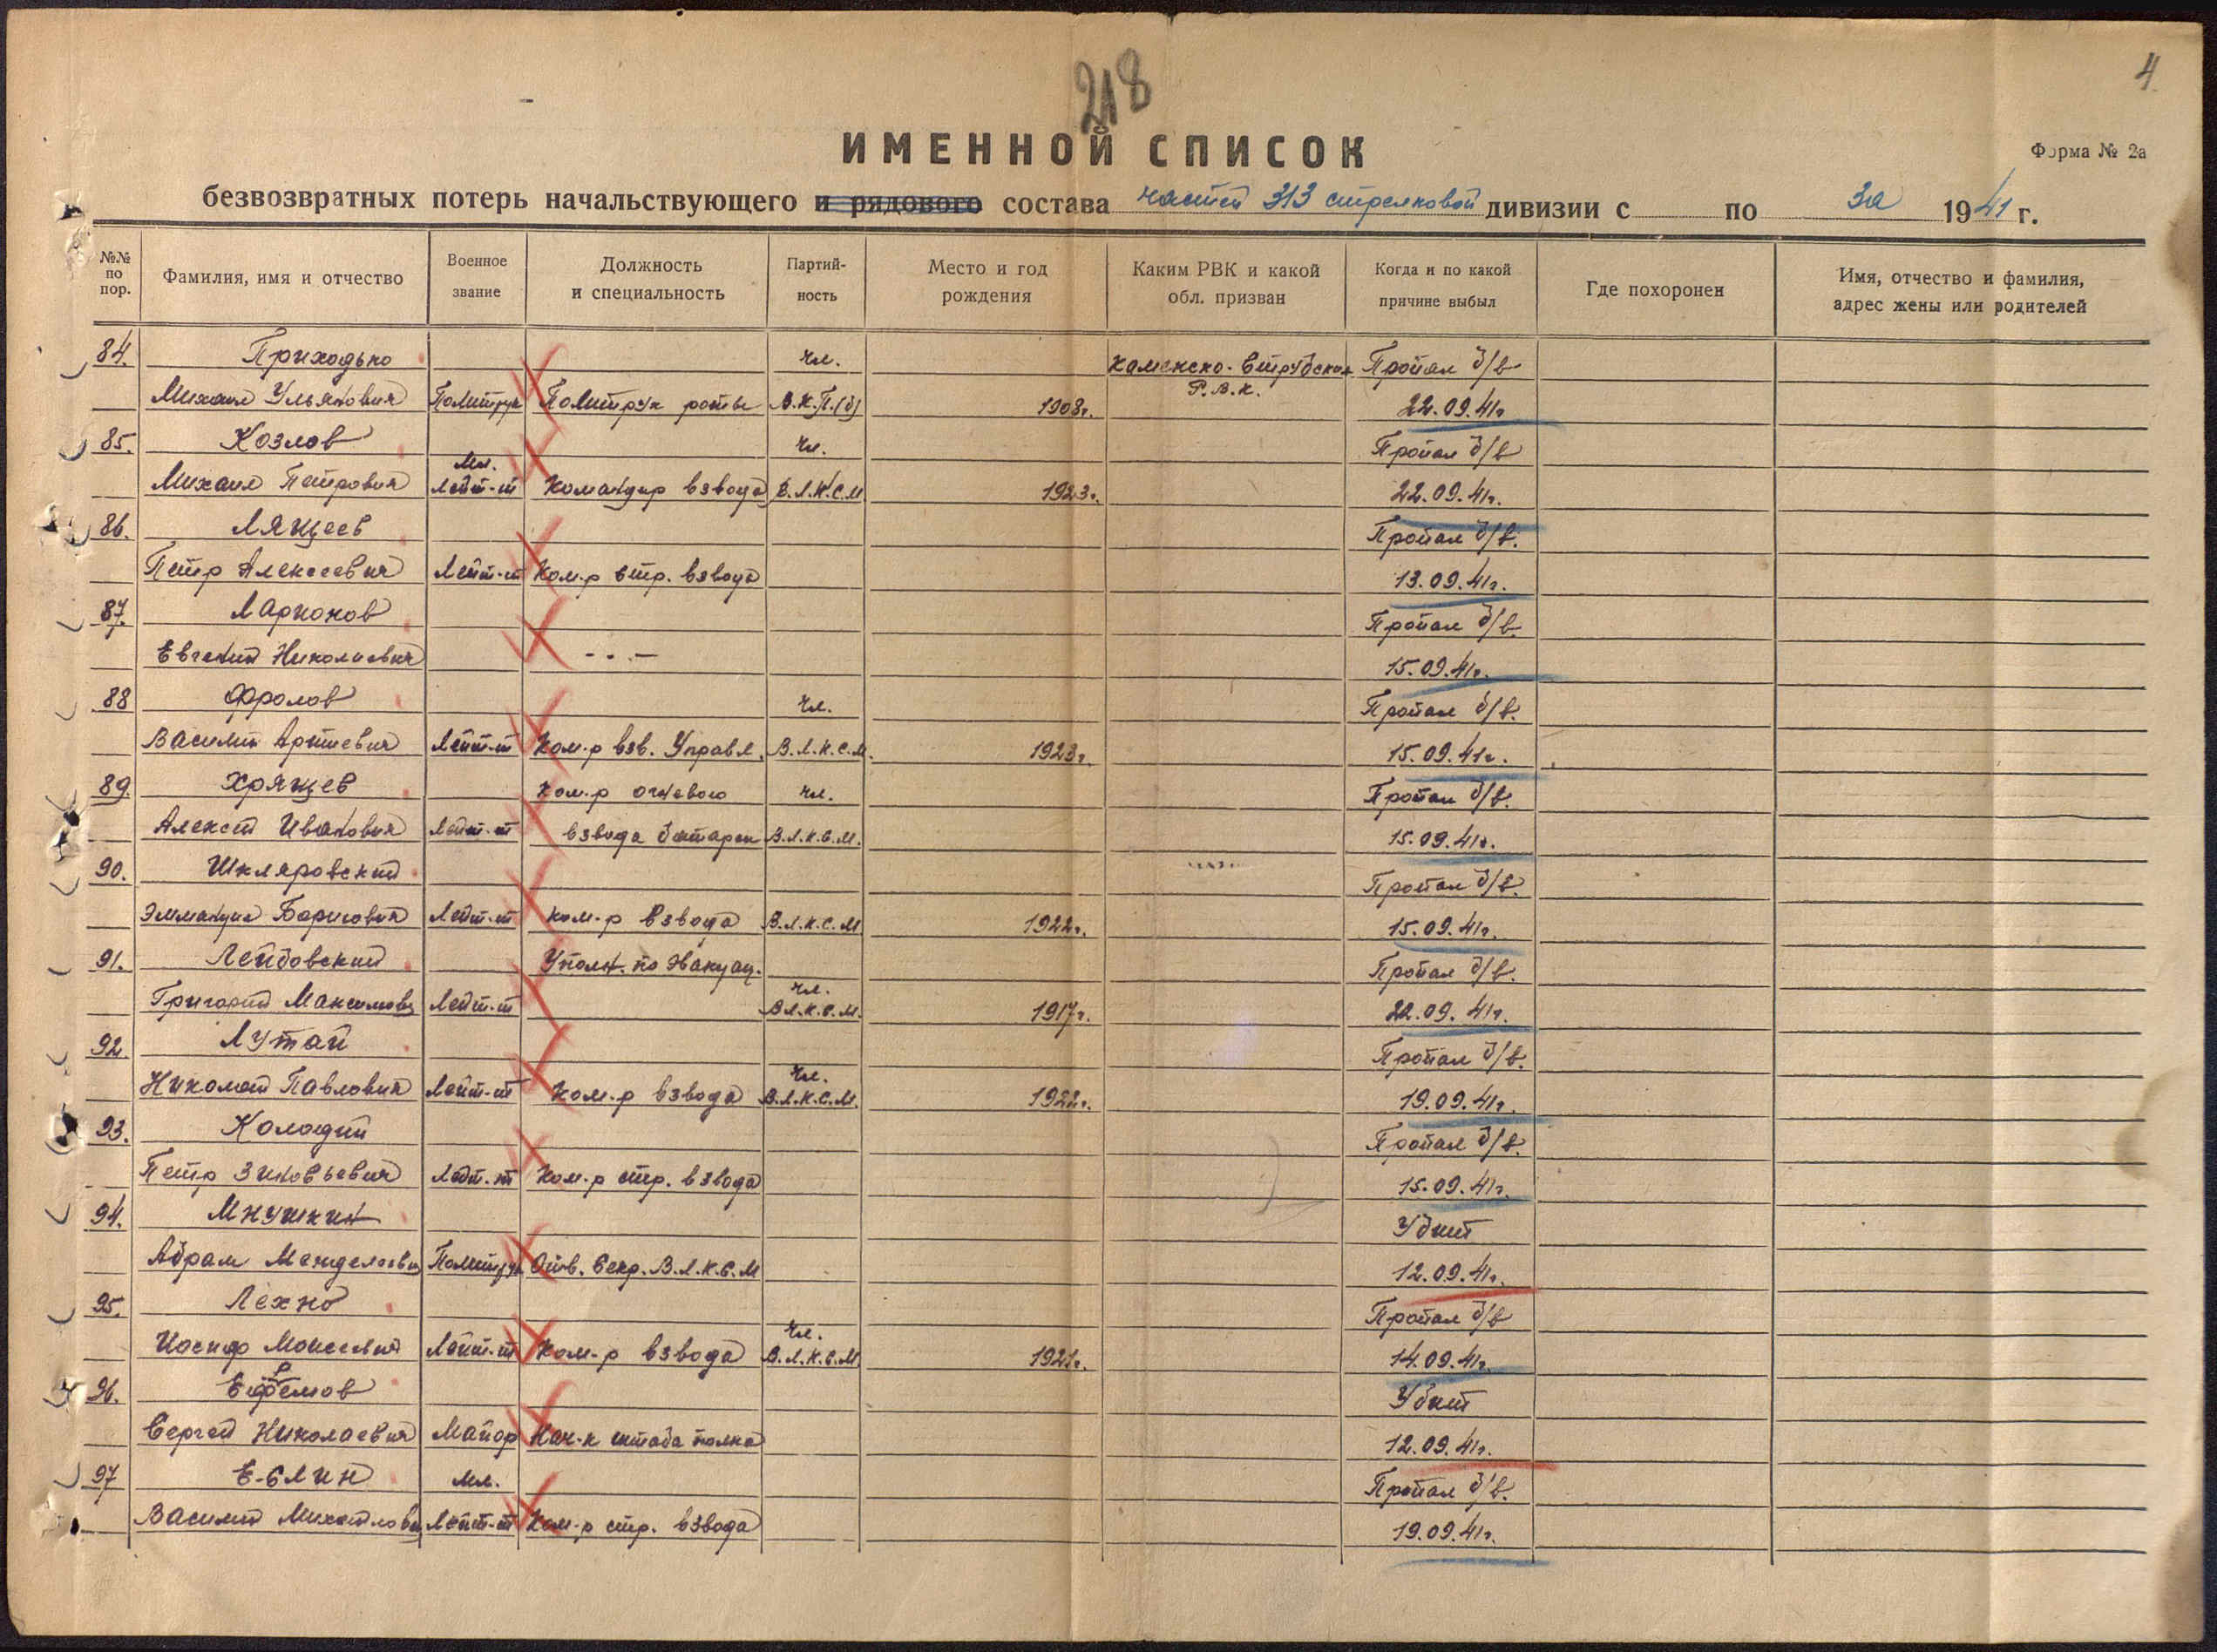 218
4
ИМЕННОЙ СПИСОК
Форма № 2а
безвозвратных потерь начальствующего и рядового состава частей 313 стрелковой дивизии с по за 1941 г.
№№ по пор. Фамилия, имя и отчество Военное звание Должность и специальность Партийность Место и год рождения Каким РВК и какой обл. призван Когда и по какой причине выбыл Где похоронен Имя, отчество и фамилия, адрес жены или родителей
84. Приходько чл. Пропал б/в
Михаил Ульянович Политрук Политрук роты В.К.П.(б) 1908г. Р.В.К. 22.09.41г
85. Козлов чл. Пропал б/в
Мл.
Михаил Петрович Лейт-т Командир взвода В.Л.К.С.М 1923г. 22.09.41г.
86. Лящеев Пропал б/в.
Петр Алексеевич Лейт-т Ком-р стр. взвода 13.09.41г.
87. Ларионов Пропал б/в.
Евгений Николаевич - . . — 15.09.41г.
88 Фролов чл. Пропал б/в.
Василий Лейт-т Ком-р взв. Управл. В.Л.К.С.М. 1923г. 15.09.41г.
89. Хрящев Ком-р огневого чл. Пропал б/в.
Алексей Иванович Лейт-т взвода батареи В.Л.К.С.М. 15.09.41г.
90. Шкляровский Пропал б/в.
Эммануил Борисович Лейт-т Ком-р взвода В.Л.К.С.М 1922г. 15.09.41г.
91. Лейбовский Уполн. по эвакуац. Пропал б/в.
чл.
Григорий Лейт-т В.Л.К.С.М. 1917г. 22.09.41г.
92. Лутай Пропал б/в.
чл.
Николай Павлович Лейт-т Ком-р взвода В.Л.К.С.М. 1922г. 19.09.41г.
93. Колодий Пропал б/в.
Петр Зиновьевич Лейт-т Ком-р стр. взвода 15.09.41г.
94. Мнушкин Убит
Абрам Политрук Отв. Секр. В.Л.К.С.М 12.09.41г.
95. Лехно Пропал б/в
чл.
Иосиф Моисеевич Лейт-т Ком-р взвода В.Л.К.С.М. 14.09.41г.
96. Убит
Сергей Николаевич Майор Нач-к штаба полка 12.09.41г.
97 Мл. Пропал б/в.
Василий Лейт-т Ком-р стр. взвода 19.09.41г.